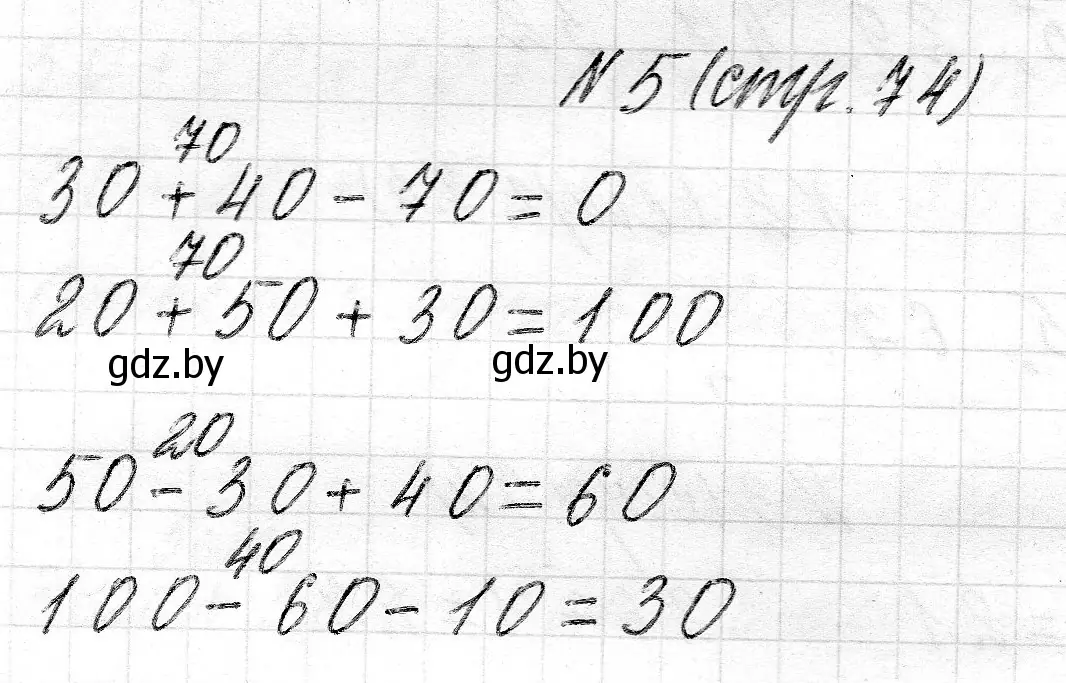 N 5 (стр. 74)
70
30 + 40 - 70 = 0
70
20 + 50 + 30 = 100
gdz.by gdz.by
20
50 - 30 + 40 = 60
40
100 - 60 - 10 = 30